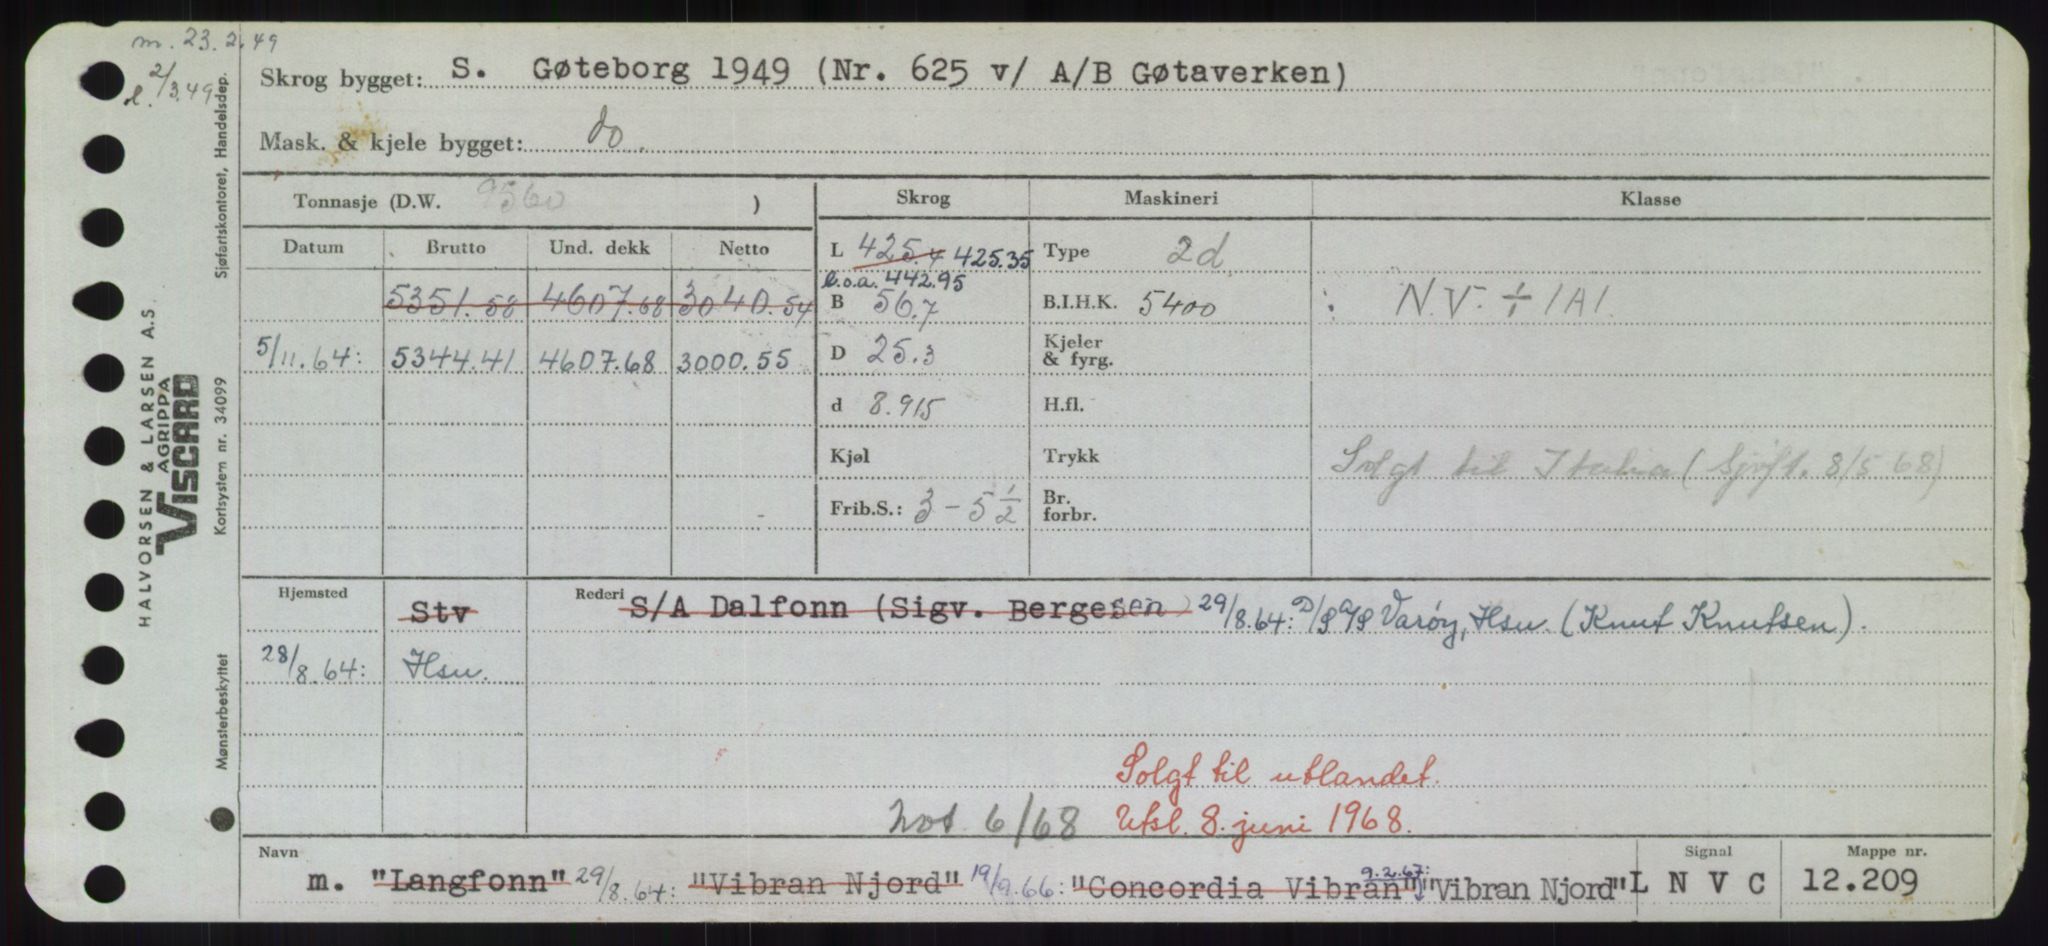 m. 23.2.49
l. 2/3.49
Skrog bygget: S. Gøteborg 1949 (Nr. 625 v/ A/B Gøtaverken)
Mask. & kjele bygget: do.
Tonnasje (D.W. 9560 )
Skrog Maskineri Klasse
Datum Brutto Und. dekk Netto
L 425.4 425.35
Type 2d
l.o.a. 442.95
5351.58 4607.68 3040.54
B 56.7
B.I.H.K. 5400
N.V. ÷ 1A1.
5/11.64: 5344.41 4607.68 3000.55
D 25.3
Kjeler
& fyrg.
d 8.915
H.fl.
Kjøl
Trykk
Solgt til Italia (Sjøft. 8/5 68)
Frib.S.: 3 – 5 1/2
Br.
forbr.
Hjemsted Stv
Rederi S/A Dalfonn (Sigv. Bergesen) 29/8.64: D/S A/S Varøy, Hsu. (Knut Knutsen).
28/8.64: Hsu.
Solgt til utlandet.
Not 6/68 Utsl. 8. juni 1968.
Navn Signal Mappe nr.
9.2.67:
m. "Langfonn" 29/8.64: "Vibran Njord" 19/9.66: "Concordia Vibran" "Vibran Njord" L N V C 12.209
HALVORSEN & LARSEN A.S.
AGRIPPA
VISCARD
Sjøfartskontoret, Handelsdep.
Kortsystem nr. 34099
Mønsterbeskyttet